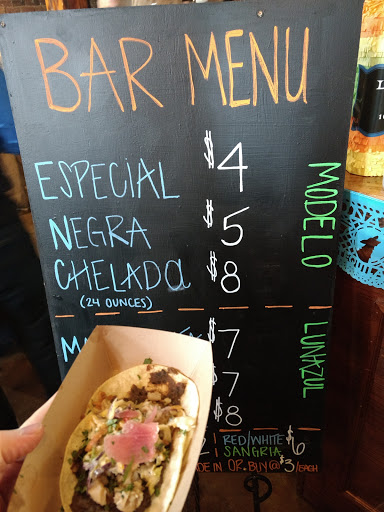 BAR MENU
ESPECIAL $4
NEGRA $5
CHELADA $8
(24 OUNCES)
MODELO
$7
$7
$8
LUNAZUL
RED/WHITE $6
SANGRIA
OR BUY @ $3/EACH